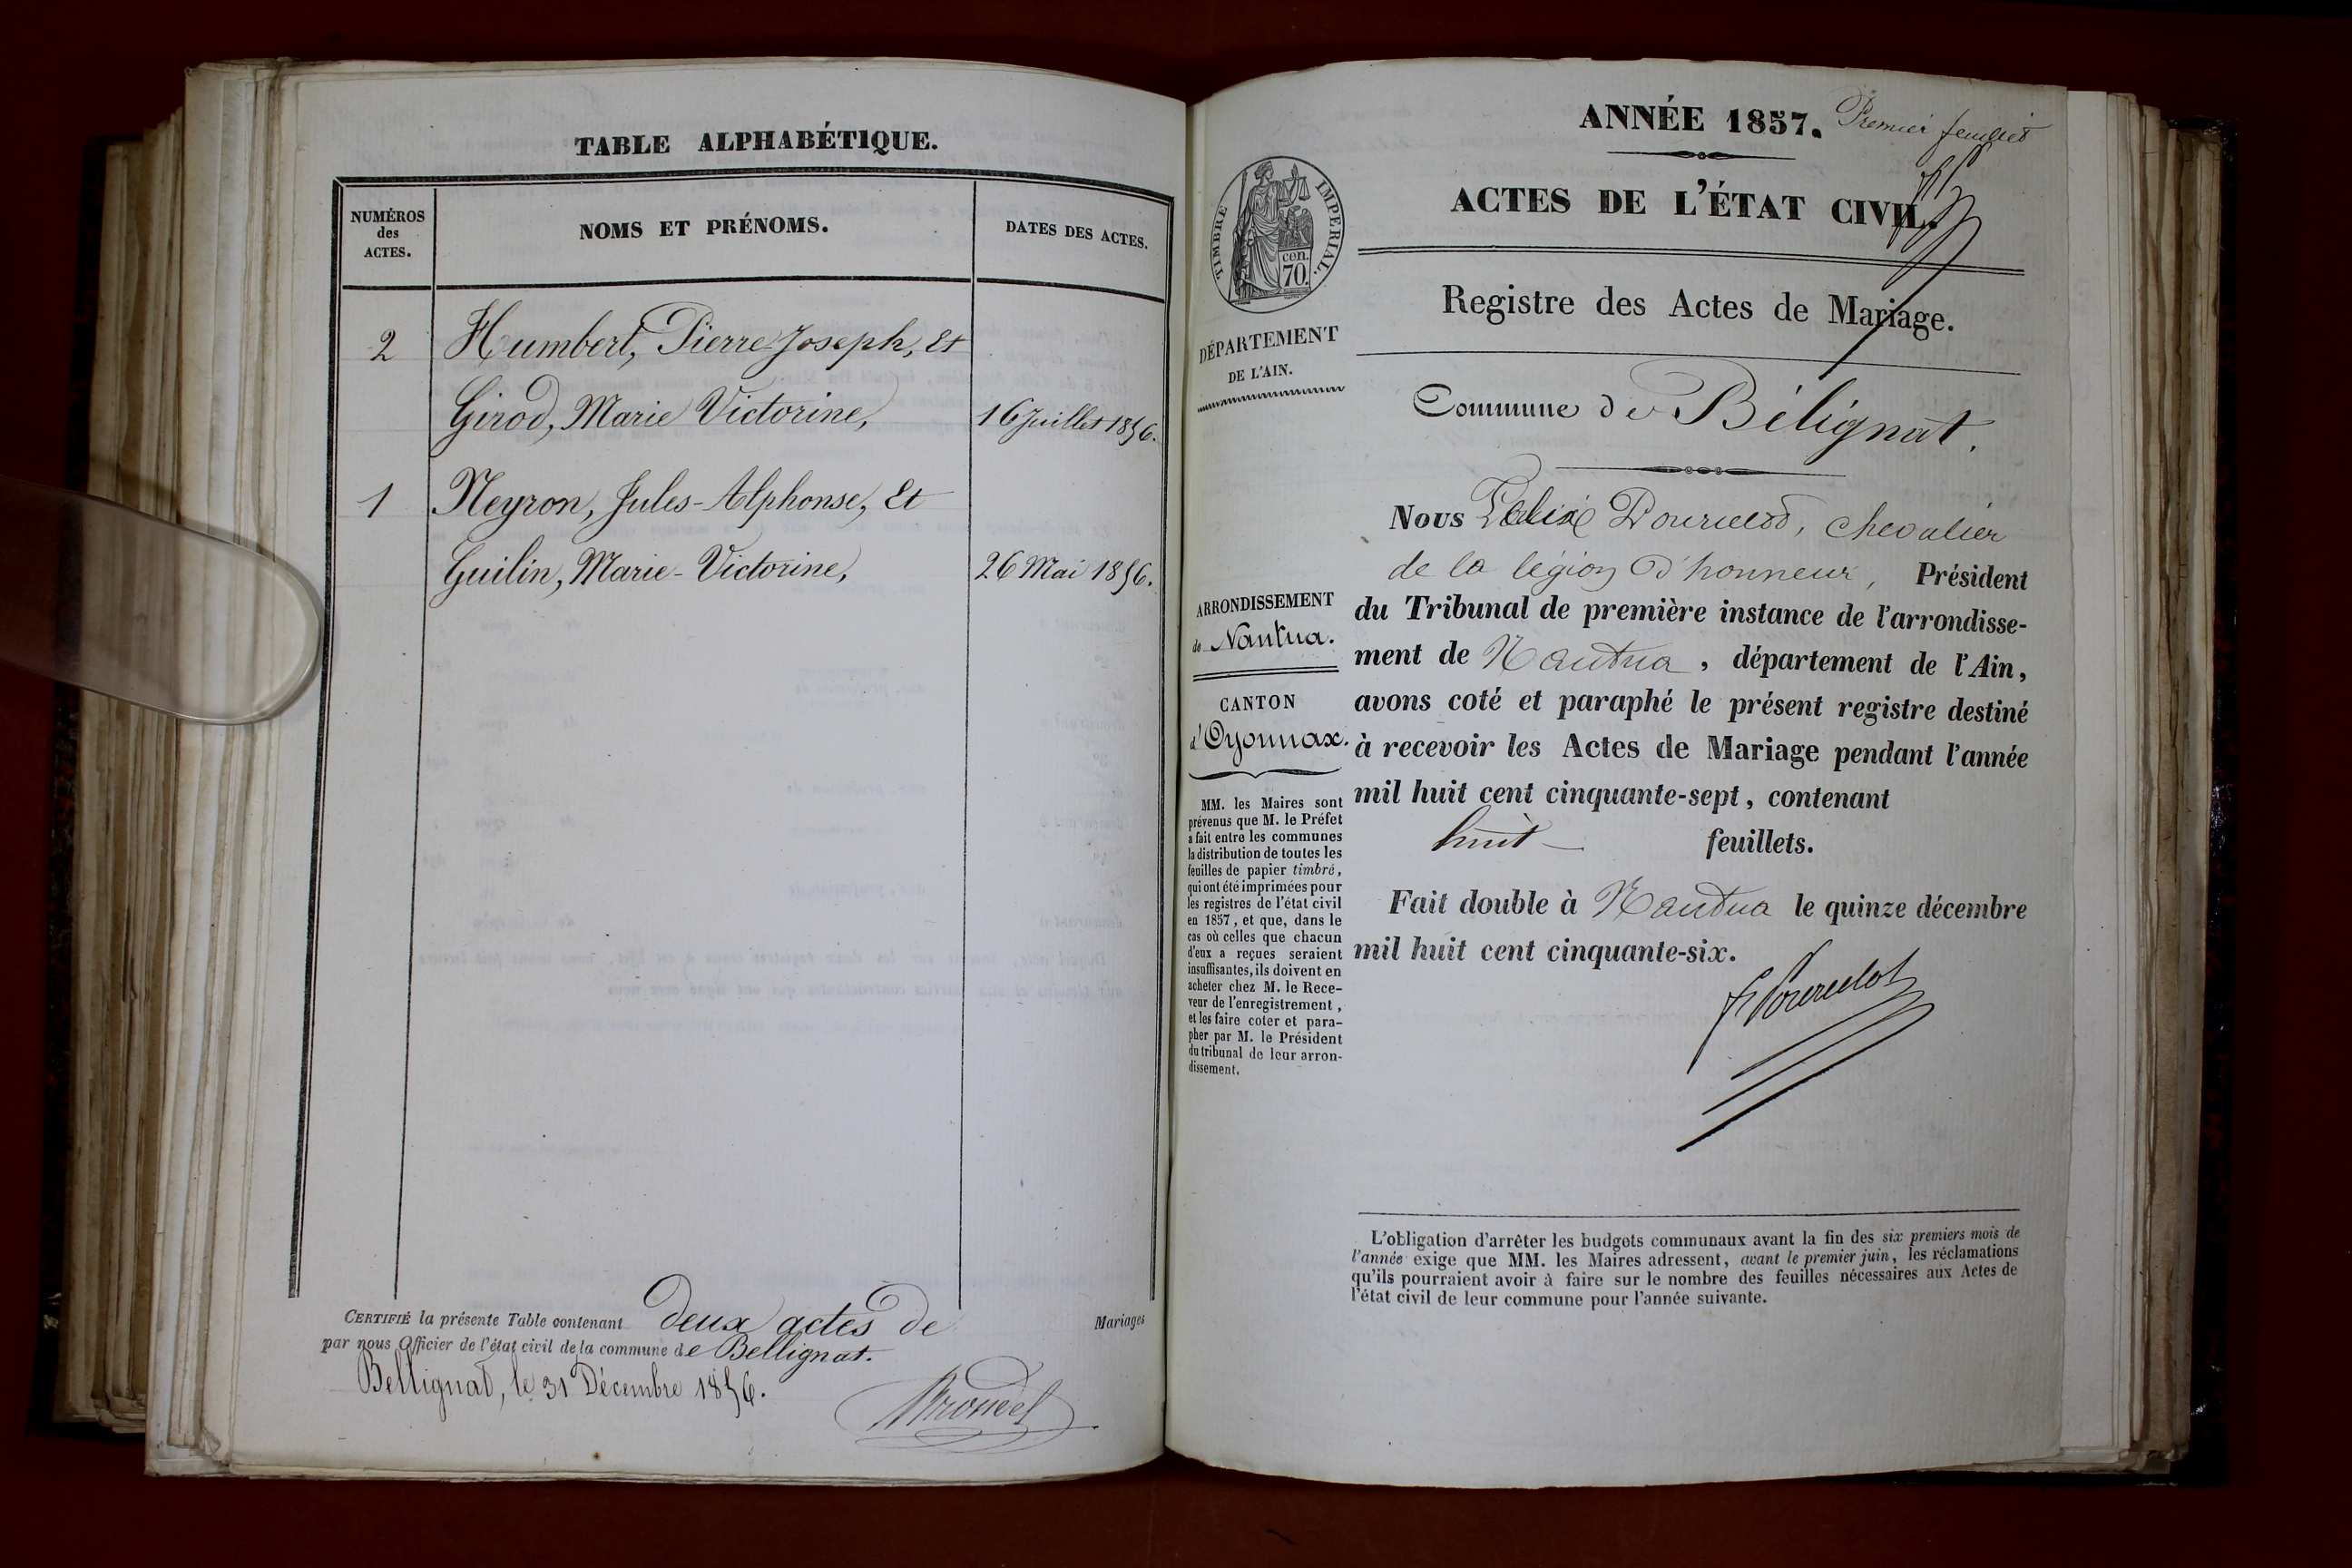 TABLE ALPHABÉTIQUE.
NUMÉROS
des
ACTES.
NOMS ET PRÉNOMS.
DATES DES ACTES.
2 Humbert, Pierre Joseph, Et
Girod, Marie Victorine, 16 Juillet 1856.
1 Neyron, Jules-Alphonse, Et
Guilin, Marie-Victorine, 26 Mai 1856.
CERTIFIÉ la présente Table contenant deux actes de Mariages
par nous Officier de l'état civil de la commune de Bellignat.
Bellignat, le 31 Décembre 1856.
ANNÉE 1857. Premier feuillet
ACTES DE L'ÉTAT CIVIL.
TIMBRE IMPERIAL.
cen.
70.
Registre des Actes de Mariage.
DÉPARTEMENT
DE L'AIN.
Commune de Bélignat.
ARRONDISSEMENT
de Nantua.
CANTON
d'Oyonnax.
MM. les Maires sont
prévenus que M. le Préfet
a fait entre les communes
la distribution de toutes les
feuilles de papier timbré,
qui ont été imprimées pour
les registres de l'état civil
en 1857, et que, dans le
cas où celles que chacun
d'eux a reçues seraient
insuffisantes, ils doivent en
acheter chez M. le Rece-
veur de l'enregistrement,
et les faire coter et para-
pher par M. le Président
du tribunal de leur arron-
dissement.
Nous Félix Pourcelot, chevalier
de la légion d'honneur, Président
du Tribunal de première instance de l'arrondisse-
ment de Nantua, département de l'Ain,
avons coté et paraphé le présent registre destiné
à recevoir les Actes de Mariage pendant l'année
mil huit cent cinquante-sept, contenant
huit feuillets.
Fait double à Nantua le quinze décembre
mil huit cent cinquante-six.
F Pourcelot
L'obligation d'arrêter les budgets communaux avant la fin des six premiers mois de
l'année exige que MM. les Maires adressent, avant le premier juin, les réclamations
qu'ils pourraient avoir à faire sur le nombre des feuilles nécessaires aux Actes de
l'état civil de leur commune pour l'année suivante.